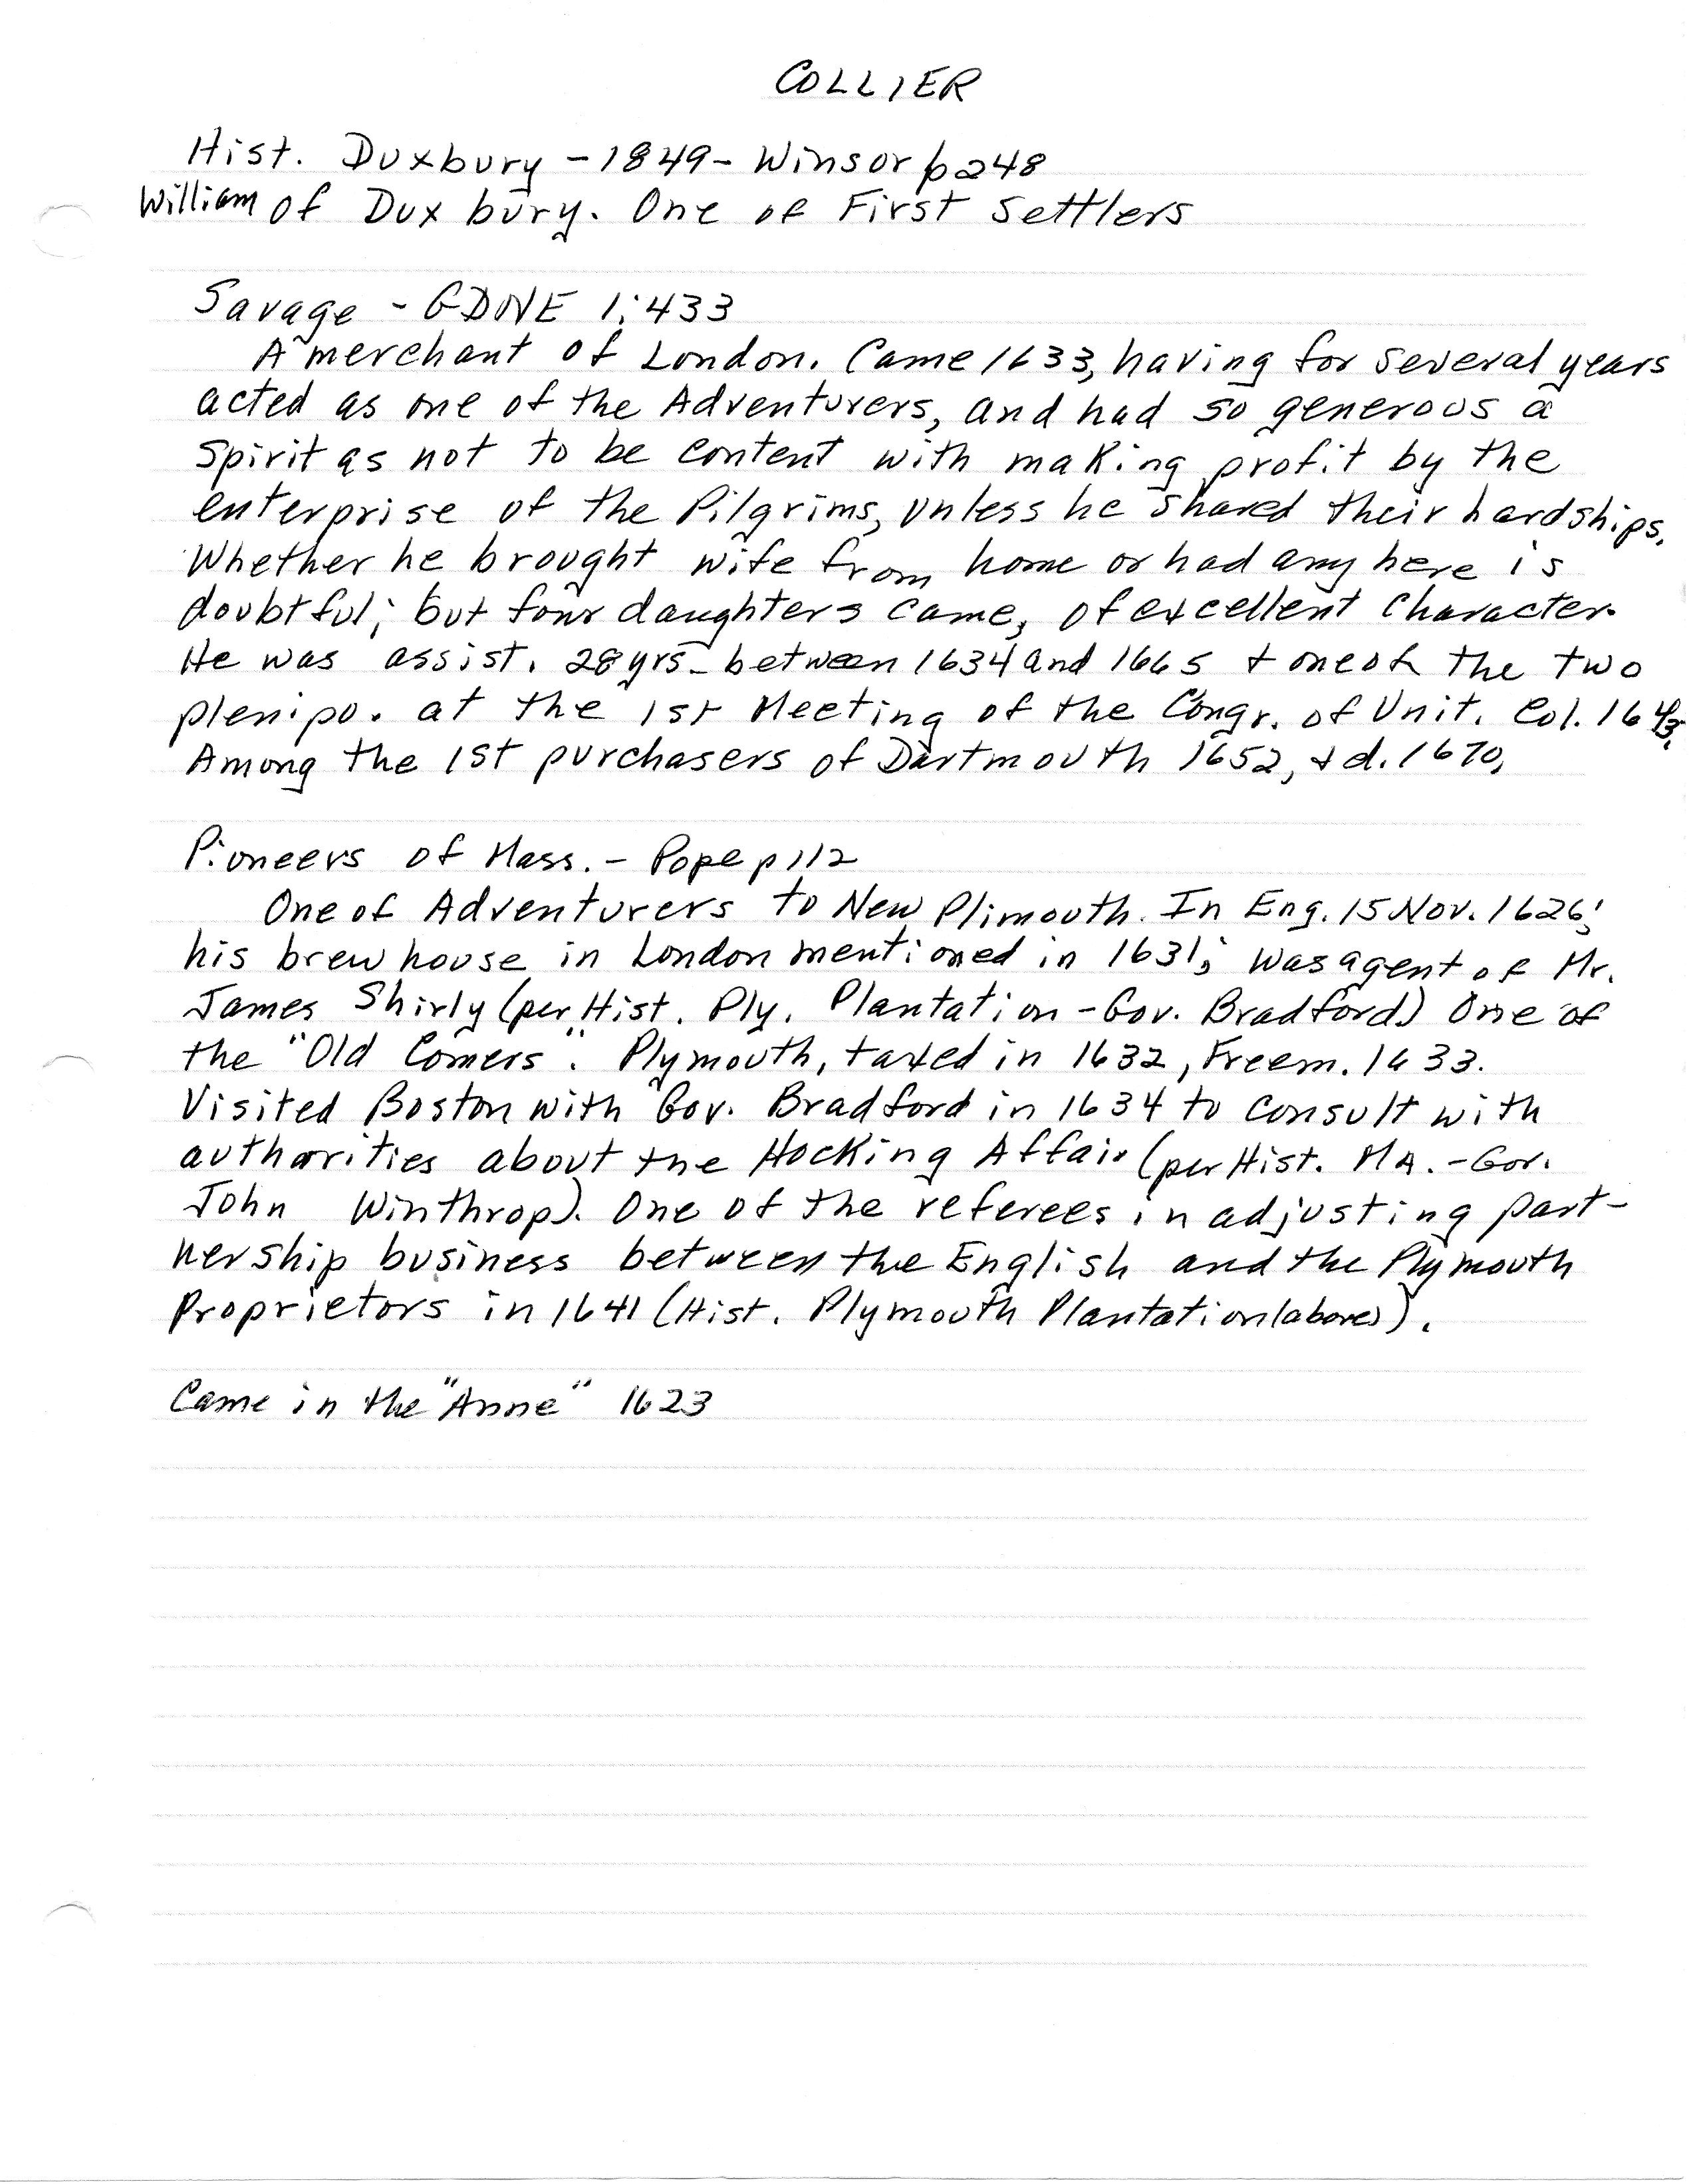 COLLIER
Hist. Duxbury - 1849 - Winsor p248
William of Duxbury. One of First Settlers
Savage - GDNE 1:433
A merchant of London. Came 1633, having for several years
acted as one of the Adventurers, and had so generous a
spirit as not to be content with making profit by the
enterprise of the Pilgrims, unless he shared their hardships.
Whether he brought wife from home or had any here is
doubtful; but four daughters came, of excellent character.
He was assist. 28 yrs. between 1634 and 1665 + one of the two
plenipo. at the 1st Meeting of the Congr. of Unit. Col. 1643.
Among the 1st purchasers of Dartmouth 1652, + d. 1670,
Pioneers of Mass. - Pope p112
One of Adventurers to New Plimouth. In Eng. 15 Nov. 1626;
his brew house in London mentioned in 1631; was agent of Mr.
James Shirly (per Hist. Ply. Plantation - Gov. Bradford) One of
the "Old Comers". Plymouth, taxed in 1632, Freem. 1633.
Visited Boston with Gov. Bradford in 1634 to consult with
authorities about the Hocking Affair (per Hist. MA. - Gov.
John Winthrop). One of the referees in adjusting part-
nership business between the English and the Plymouth
Proprietors in 1641 (Hist. Plymouth Plantation (above)).
Came in the "Anne" 1623